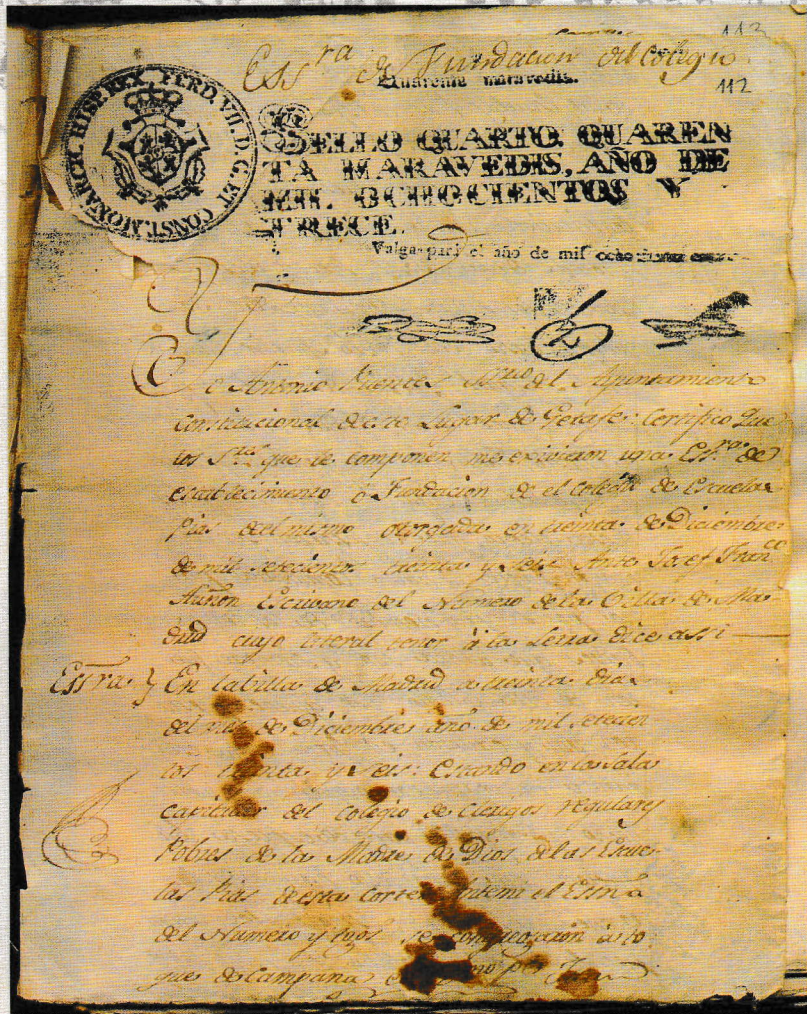 112
Essra de Fundacion del Colegio
Quarenta maravedis.
112
HISP. REX. FERD. VII. D. G. ET CONST. MONARCH.
SELLO QUARTO. QUAREN
TA MARAVEDIS, AÑO DE
MIL OCHOCIENTOS Y
TRECE.
Valga para el año de mil ocho
Antonio Fuentes Srio del Ayuntamiento
Constitucional de este Lugar de Getafe: Certifico Que
los Sres que le componen me exivieron una Essra de
establecimiento ó Fundacion de el Colegio de Escuelas
Pias del mismo otorgada en treinta de Diciembre
de mil setecientos treinta y seis Ante Josef Franco
Escribano del Numero de la Villa de Ma
drid cuyo literal tenor à la Letra dice assi
Essra En la billa de Madrid a treinta dias
del mes de Diciembre año de mil setecien
tos treinta y seis: Estando en la Sala
capitular del Colegio de Clerigos regulares
Pobres de la Madre de Dios de las Escue
las Pias de esta Corte ante mi el Essno
del Numero y tgos se congregaron à to
que de Campana